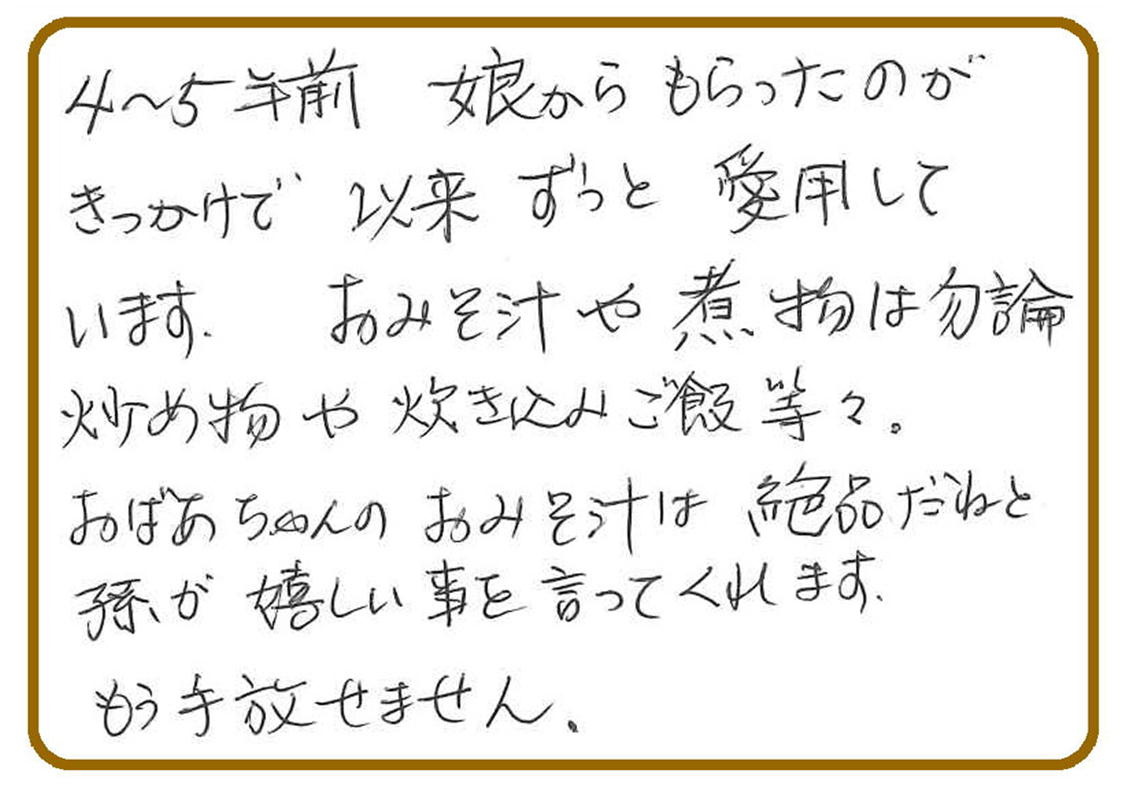 4～5年前 娘からもらったのが
きっかけで 以来 ずっと 愛用して
います. おみそ汁や煮物は勿論
炒め物や炊き込みご飯等々。
おばあちゃんの おみそ汁は 絶品だねと
孫が 嬉しい事を言ってくれます.
もう手放せません。